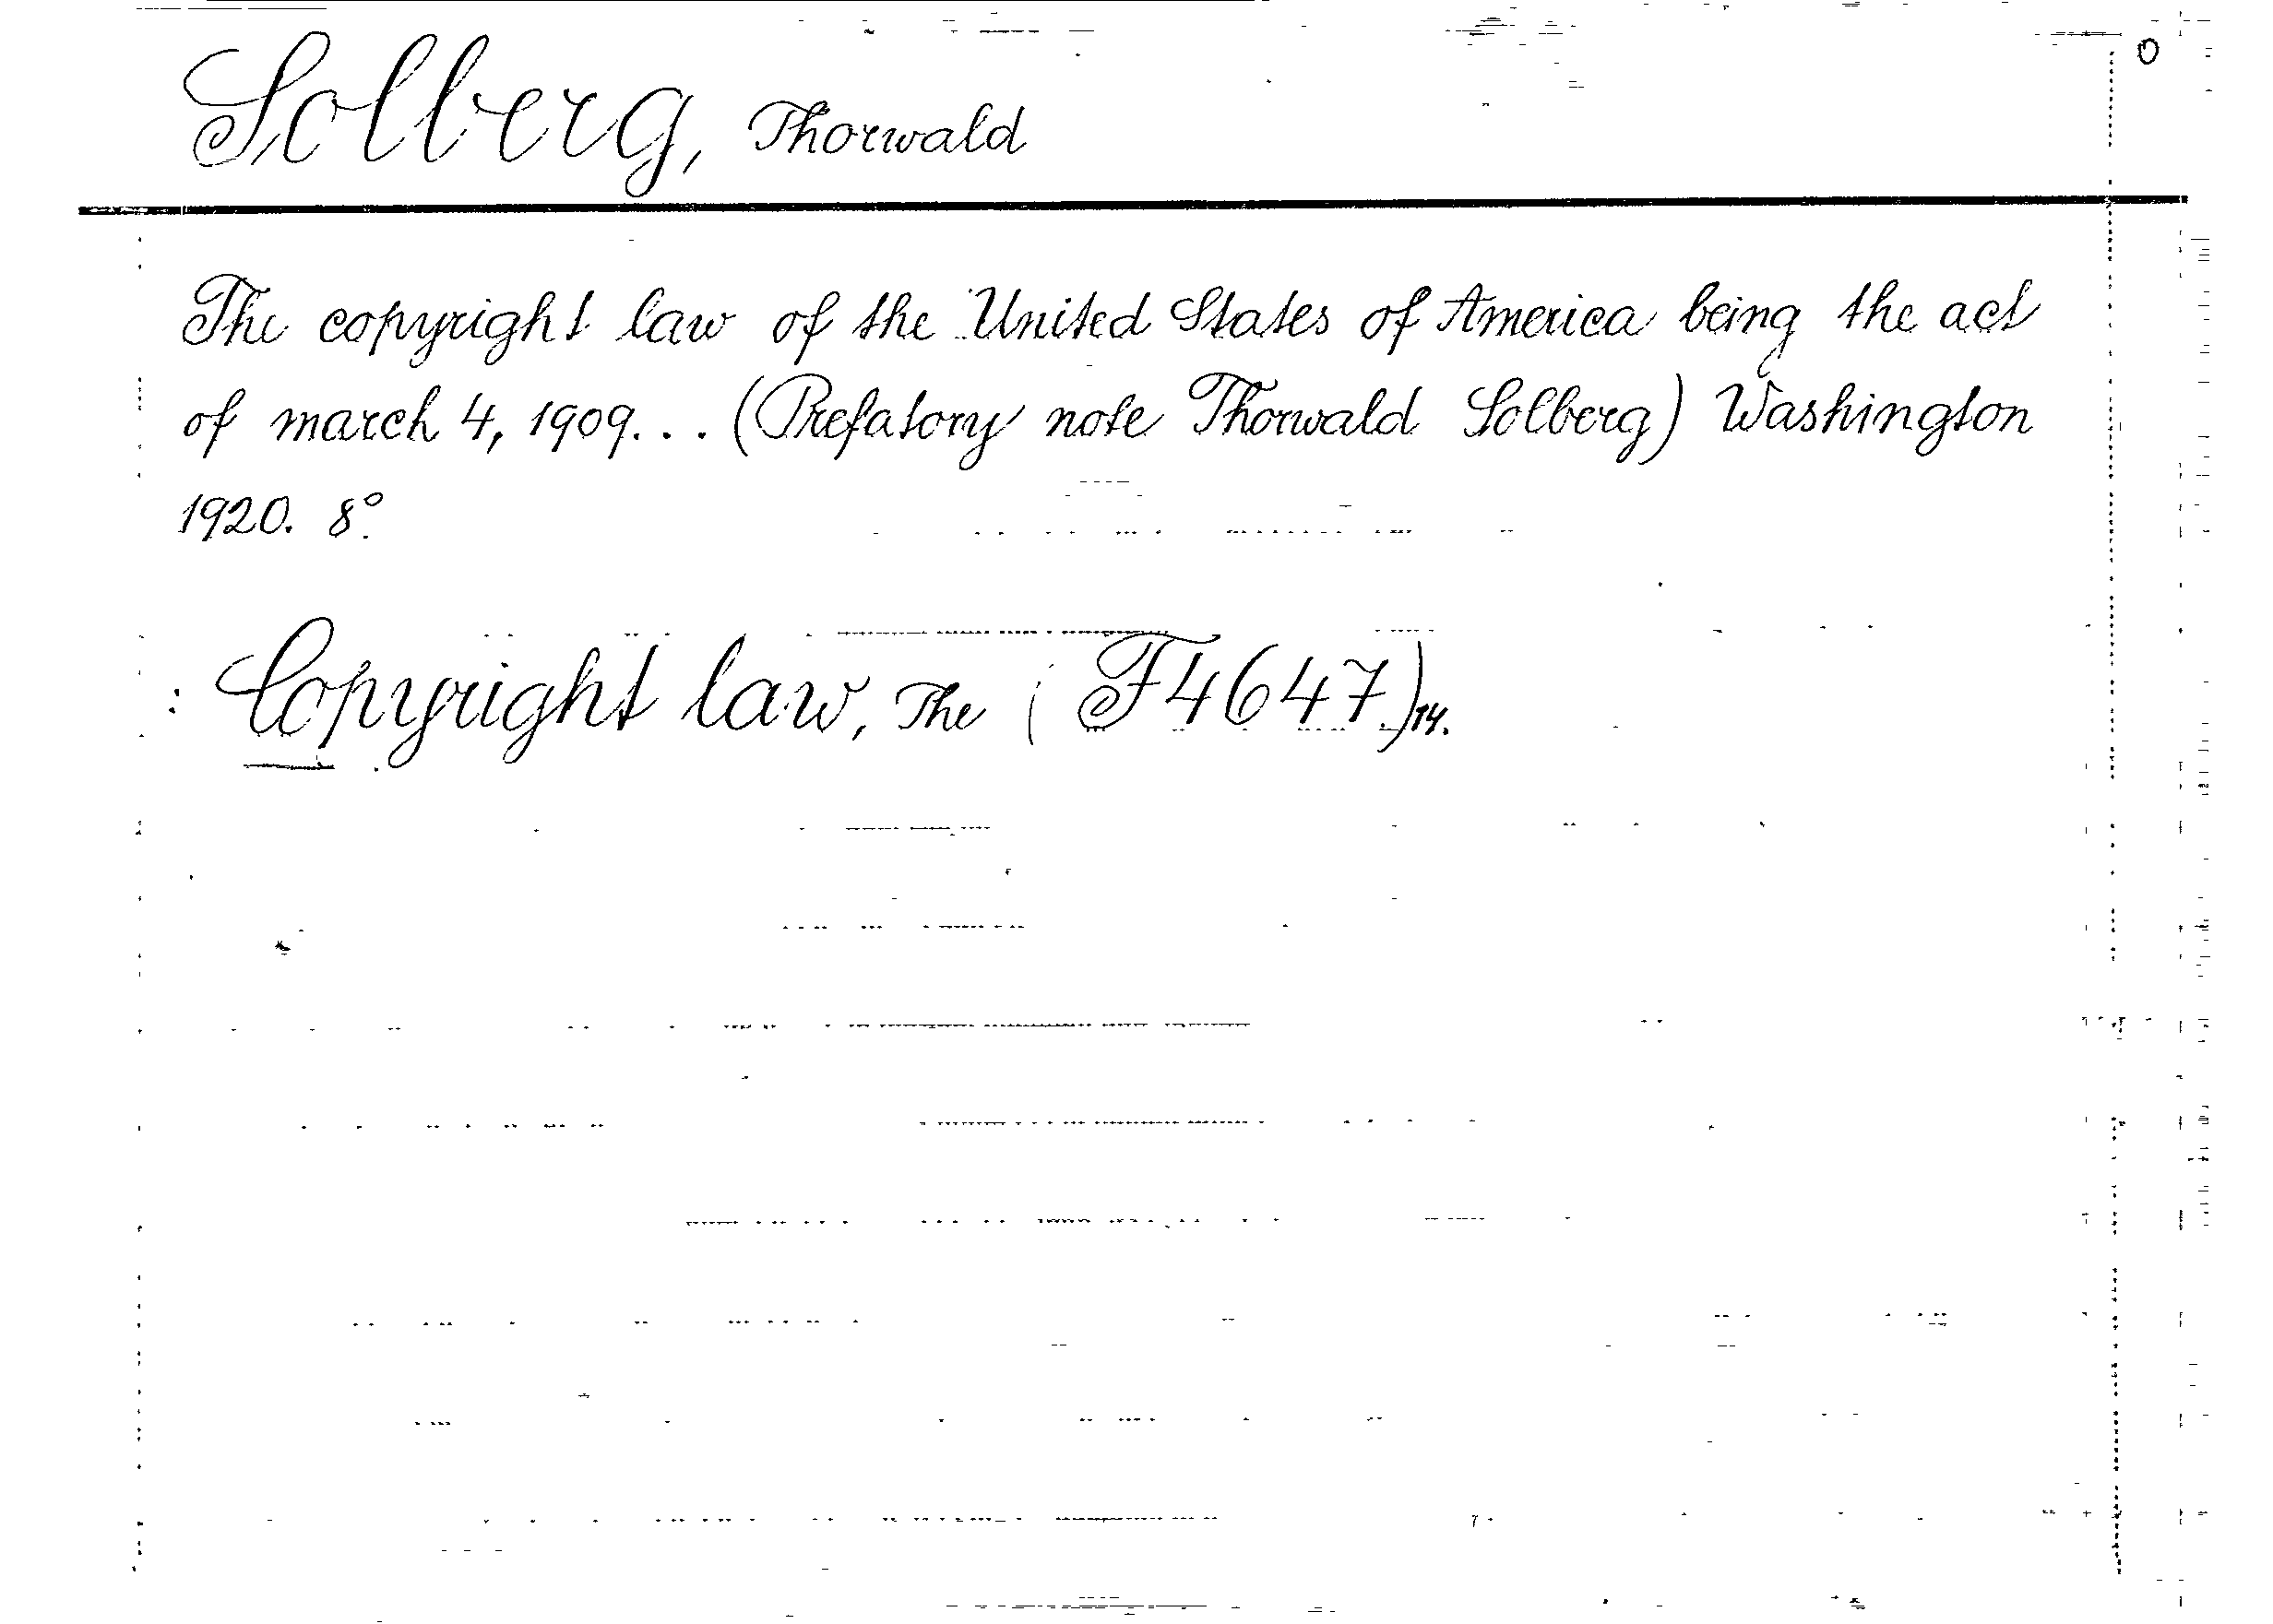 O
Solberg, Thorwald
The copyright law of the United States of America being the act
of march 4, 1909... (Prefatory note Thorwald Solberg) Washington
1920. 8°.
: Copyright law, The (F4647.)14.